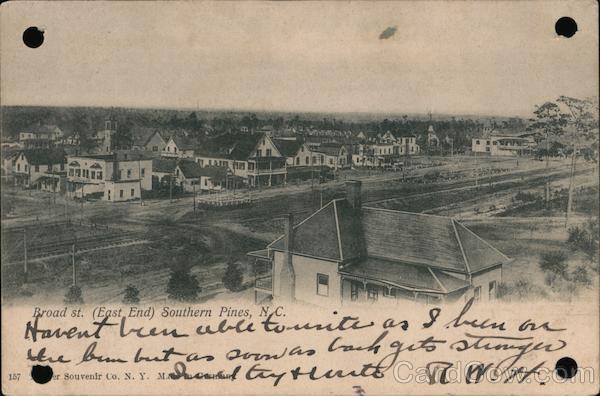 Broad st. (East End) Southern Pines, N.C.
Havent been able to write as I been on
the bum but as soon as back gets stronger
I will try & write R.W.H.
157 er Souvenir Co. N. Y. Made in Germany
CardCow.com